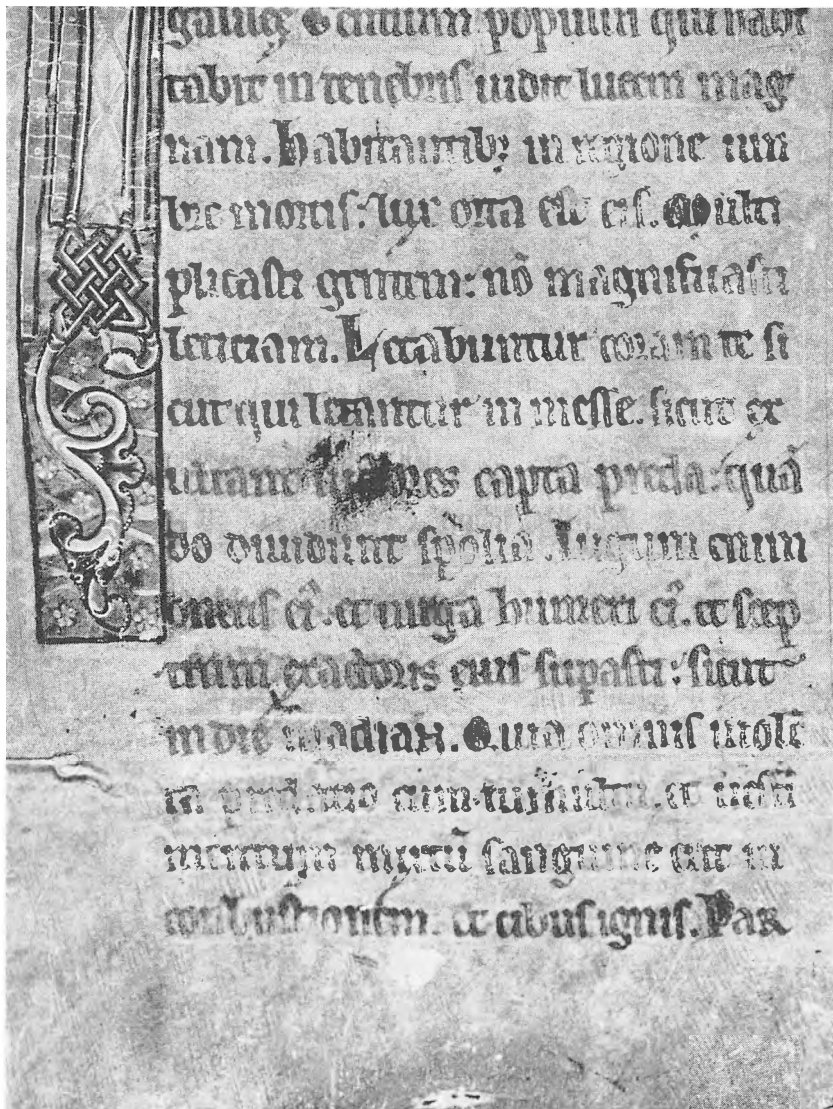 galileę Gentium populus qui habi
tabit in tenebris uidit lucem mag
nam. Habitantibꝫ in regione um
bre mortis: lux orta est eis. Multi
plicasti gentem: nō magnificasti
leticiam. Letabuntur coram te si
cut qui letantur in messe. sicut ex
ultant uictores capta preda: quā
do diuidunt spolia. Iugum enim
oneris eiꝰ. et uirga humeri eiꝰ. et scep
trum exactoris eius suꝑasti: sicut
in die madian. Quia omnis uiolē
ta predatio cum tumultu. et uesti
mentum mixtū sanguine erit in
conbustionem. et cibus ignis. Par